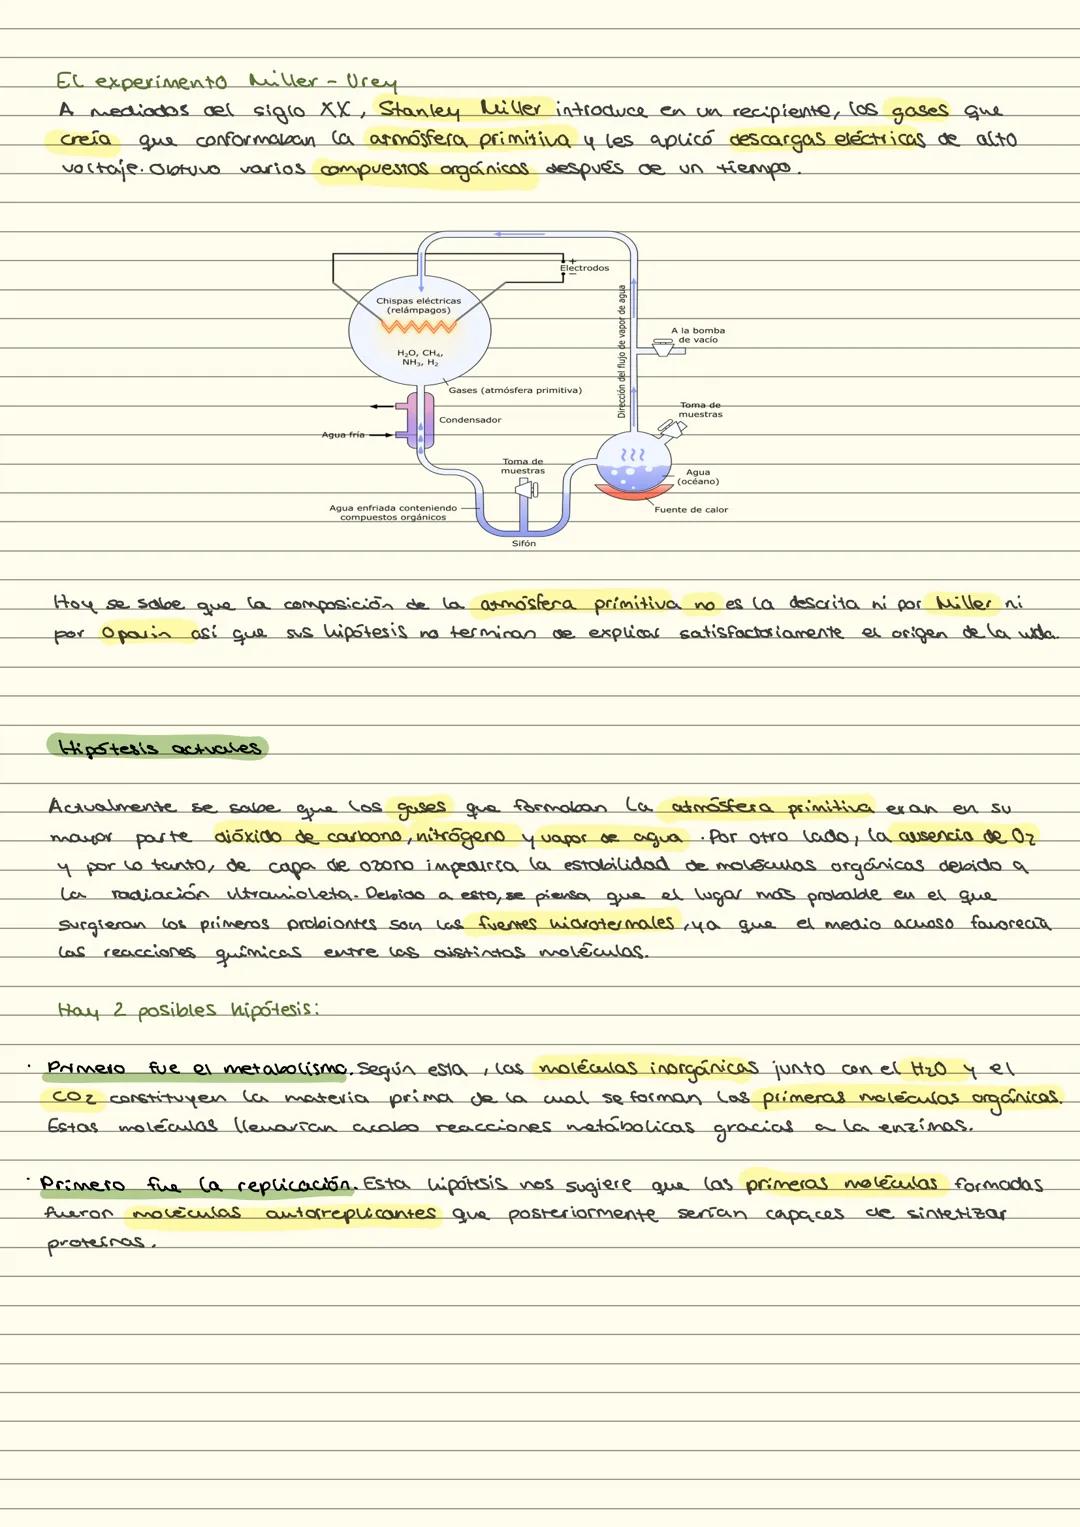 El experimento Miller - Urey
A mediados del siglo XX, Stanley Miller introduce en un recipiente, los gases que
creía que conformaban la atmósfera primitiva y les aplicó descargas eléctricas de alto
voltaje. Obtuvo varios compuestos orgánicos después de un tiempo.
+
Electrodos
-
Chispas eléctricas
(relámpagos)
H₂O, CH₄,
NH₃, H₂
Dirección del flujo de vapor de agua
A la bomba
de vacío
Gases (atmósfera primitiva)
Condensador
Agua fría
Toma de
muestras
Toma de
muestras
Agua
(océano)
Agua enfriada conteniendo
compuestos orgánicos
Fuente de calor
Sifón
Hoy se sabe que la composición de la atmósfera primitiva no es la descrita ni por Miller ni
por Oparin así que sus hipótesis no terminan de explicar satisfactoriamente el origen de la vida.
Hipótesis actuales
Actualmente se sabe que los gases que formaban la atmósfera primitiva eran en su
mayor parte dióxido de carbono, nitrógeno y vapor de agua. Por otro lado, la ausencia de O₂
y por lo tanto, de capa de ozono impediría la estabilidad de moléculas orgánicas debido a
la radiación ultravioleta. Debido a esto, se piensa que el lugar más probable en el que
surgieran los primeros probiontes son las fuentes hidrotermales, ya que el medio acuoso favorecía
las reacciones químicas entre las distintas moléculas.
Hay 2 posibles hipótesis:
· Primero fue el metabolismo. Según esta, las moléculas inorgánicas junto con el H₂O y el
CO₂ constituyen la materia prima de la cual se forman las primeras moléculas orgánicas.
Estas moléculas llevarían acabo reacciones metábolicas gracias a la enzimas.
· Primero fue la replicación. Esta hipótesis nos sugiere que las primeras moléculas formadas
fueron moléculas autorreplicantes que posteriormente serían capaces de sintetizar
proteínas.